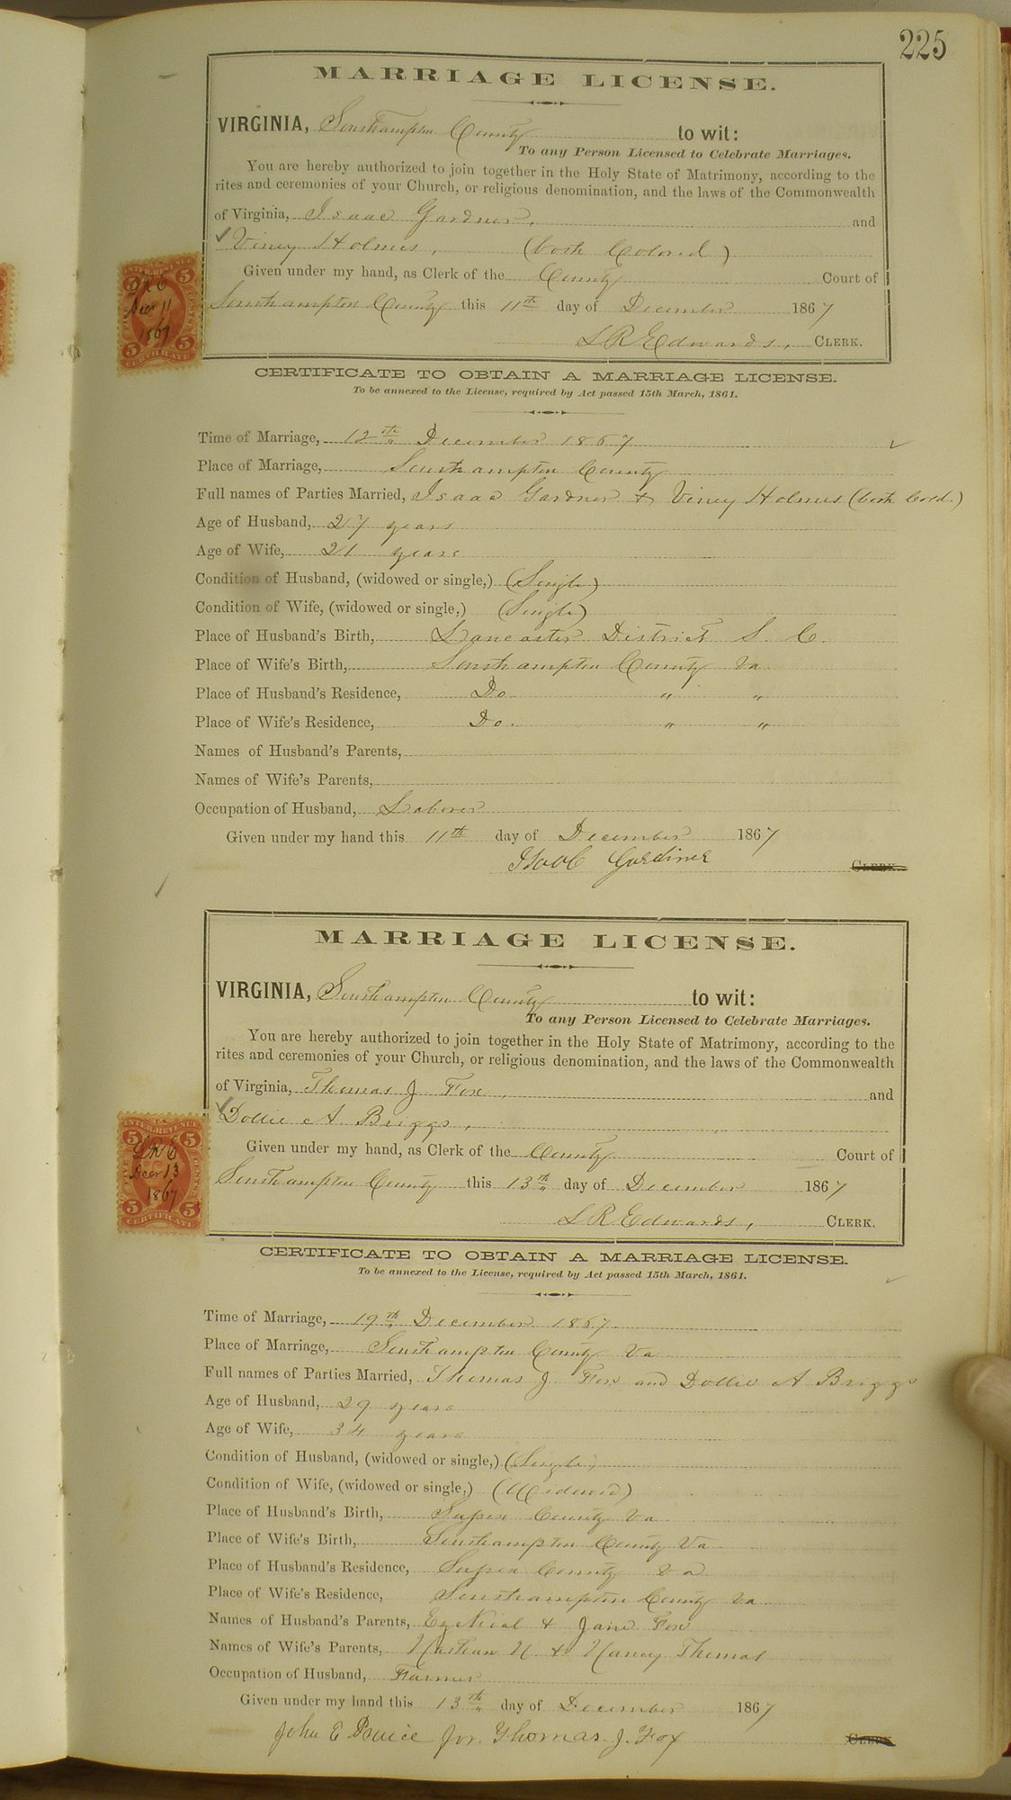 225
MARRIAGE LICENSE.
VIRGINIA, Southampton County to wit:
To any Person Licensed to Celebrate Marriages.
You are hereby authorized to join together in the Holy State of Matrimony, according to the
rites and ceremonies of your Church, or religious denomination, and the laws of the Commonwealth
of Virginia, Isaac Gardner, and
Viney Holmes, (both Colored)
Given under my hand, as Clerk of the County Court of
Southampton County this 11th day of December 1867
L R Edwards, CLERK.
INTER. REVENUE
5 5
LRE
Decr 11
1867
5 5
CERTIFICATE
CERTIFICATE TO OBTAIN A MARRIAGE LICENSE.
To be annexed to the License, required by Act passed 15th March, 1861.
Time of Marriage, 12th December 1867
Place of Marriage, Southampton County
Full names of Parties Married, Isaac Gardner & Viney Holmes (both Cold.)
Age of Husband, 27 years
Age of Wife, 21 years
Condition of Husband, (widowed or single,) (Single)
Condition of Wife, (widowed or single,) (Single)
Place of Husband's Birth, Lancaster District S. C.
Place of Wife's Birth, Southampton County Va
Place of Husband's Residence, Do. " "
Place of Wife's Residence, Do. " "
Names of Husband's Parents,
Names of Wife's Parents,
Occupation of Husband, Laborer
Given under my hand this 11th day of December 1867
Gardiner CLERK.
MARRIAGE LICENSE.
VIRGINIA, Southampton County to wit:
To any Person Licensed to Celebrate Marriages.
You are hereby authorized to join together in the Holy State of Matrimony, according to the
rites and ceremonies of your Church, or religious denomination, and the laws of the Commonwealth
of Virginia, Thomas J Fox, and
Dollie A Briggs,
Given under my hand, as Clerk of the County Court of
Southampton County this 13th day of December 1867
L R Edwards, CLERK.
INTER. REVENUE
5 5
LRE
Decr 13
1867
5 5
CERTIFICATE
CERTIFICATE TO OBTAIN A MARRIAGE LICENSE.
To be annexed to the License, required by Act passed 15th March, 1861.
Time of Marriage, 19th December 1867
Place of Marriage, Southampton County Va
Full names of Parties Married, Thomas J Fox and Dollie A Briggs
Age of Husband, 29 years
Age of Wife, 34 years
Condition of Husband, (widowed or single,) (Single)
Condition of Wife, (widowed or single,) (Widowed)
Place of Husband's Birth, Sussex County Va
Place of Wife's Birth, Southampton County Va
Place of Husband's Residence, Sussex County Va
Place of Wife's Residence, Southampton County Va
Names of Husband's Parents, Ezekiel & Jane Fox
Names of Wife's Parents, Nathan N & Nancy Thomas
Occupation of Husband, Farmer
Given under my hand this 13th day of December 1867
John E Bruce for Thomas J. Fox CLERK